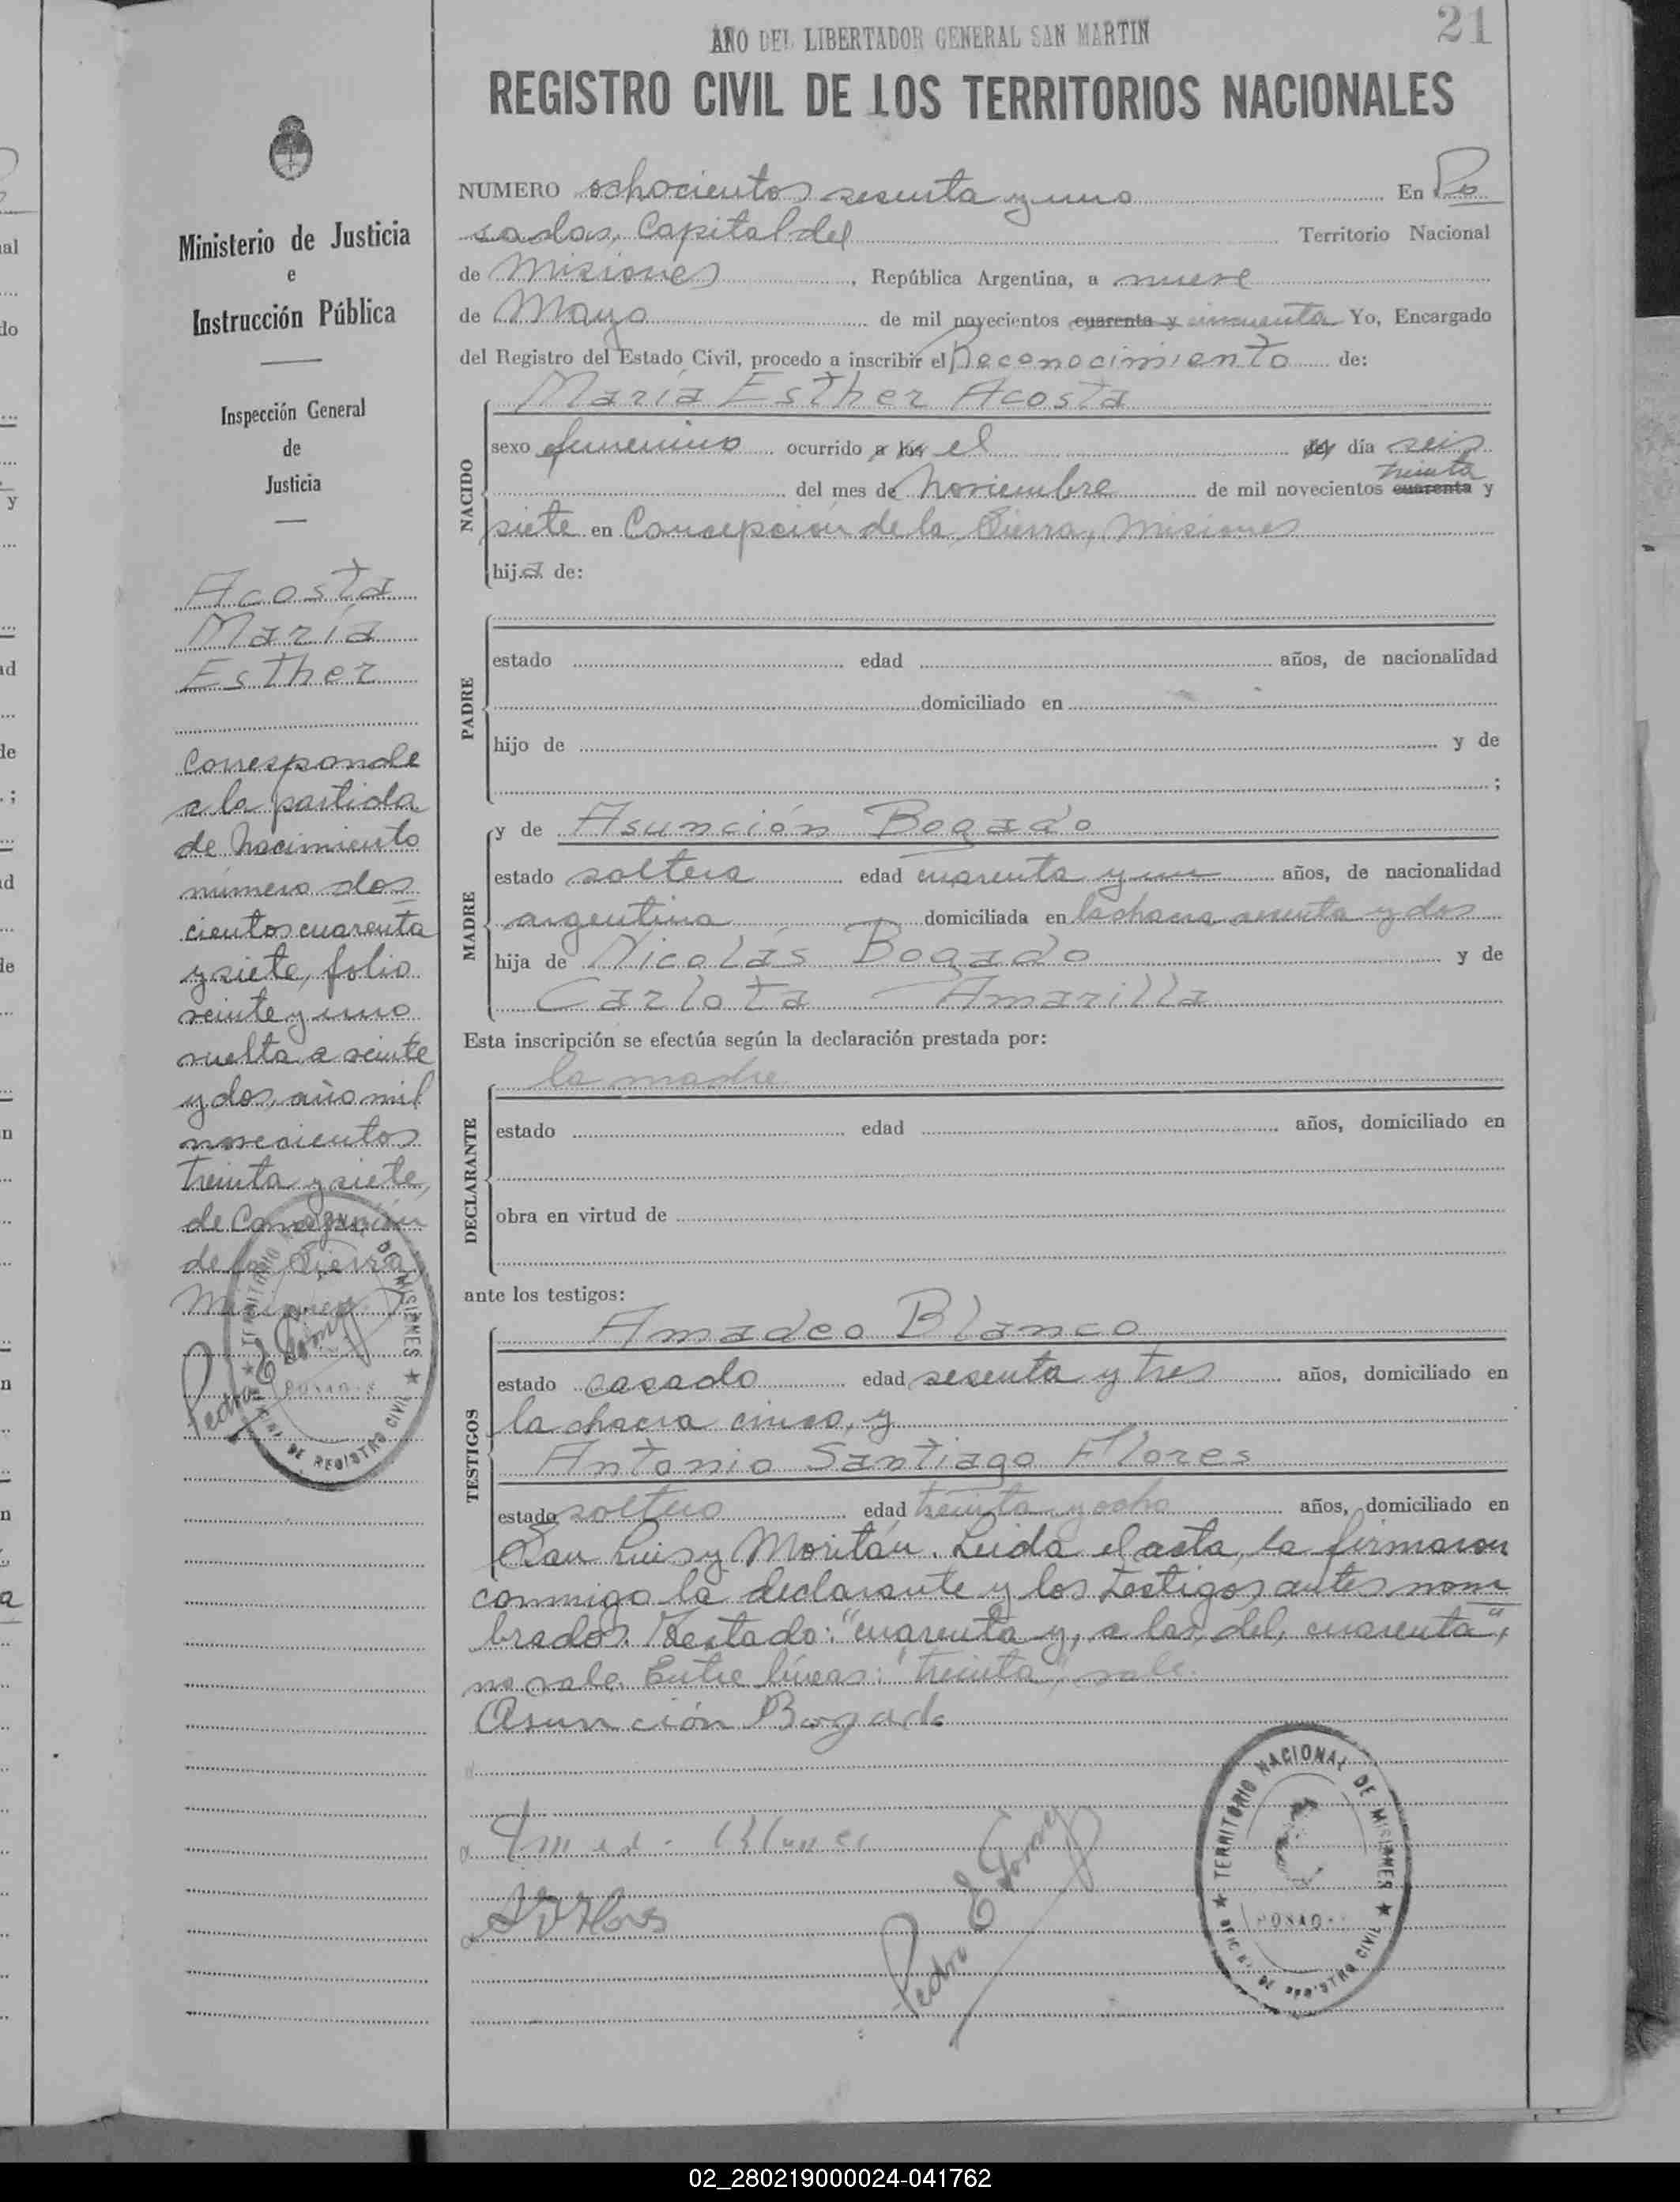 AÑO DEL LIBERTADOR GENERAL SAN MARTIN
21
REGISTRO CIVIL DE LOS TERRITORIOS NACIONALES
Ministerio de Justicia
e
Instrucción Pública
Inspección General
de
Justicia
Acosta
María
Esther
Corresponde
a la partida
de nacimiento
número dos
cientos cuarenta
y siete, folio
veinte y uno
vuelta a veinte
y dos, año mil
novecientos
treinta y siete,
de Concepción
de la Sierra,
Misiones.
Pedro E Gomez
TERRITORIO NACIONAL DE MISIONES
OFICINA DE REGISTRO CIVIL
POSADAS
NUMERO ochocientos sesenta y uno En Po
sadas, Capital del Territorio Nacional
de Misiones, República Argentina, a nueve
de Mayo de mil novecientos cuarenta y cincuenta Yo, Encargado
del Registro del Estado Civil, procedo a inscribir el Reconocimiento de:
María Esther Acosta
NACIDO
sexo femenino ocurrido a las el del día seis
treinta
del mes de Noviembre de mil novecientos cuarenta y
siete en Concepción de la Sierra, Misiones
hija de:
PADRE
estado edad años, de nacionalidad
domiciliado en
hijo de y de
;
MADRE
y de Asunción Bogado
estado soltera edad cuarenta y un años, de nacionalidad
argentina domiciliada en la chacra sesenta y dos
hija de Nicolás Bogado y de
Carlota Amarilla
Esta inscripción se efectúa según la declaración prestada por:
la madre
DECLARANTE
estado edad años, domiciliado en
obra en virtud de
ante los testigos:
TESTIGOS
Amadeo Blanco
estado casado edad sesenta y tres años, domiciliado en
la chacra cinco, y
Antonio Santiago Flores
estado soltero edad treinta y ocho años, domiciliado en
San Luis y Moritán. Leida el acta, la firmaron
conmigo la declarante y los testigos antes nom
brados. Testado: "cuarenta y, a las, del, cuarenta",
no vale. Entre líneas: "treinta", vale.
Asunción Bogado
Amad. Blanco
A S Flores
Pedro E Gomez
TERRITORIO NACIONAL DE MISIONES
OFICINA DE REGISTRO CIVIL
POSADAS
02_280219000024-041762